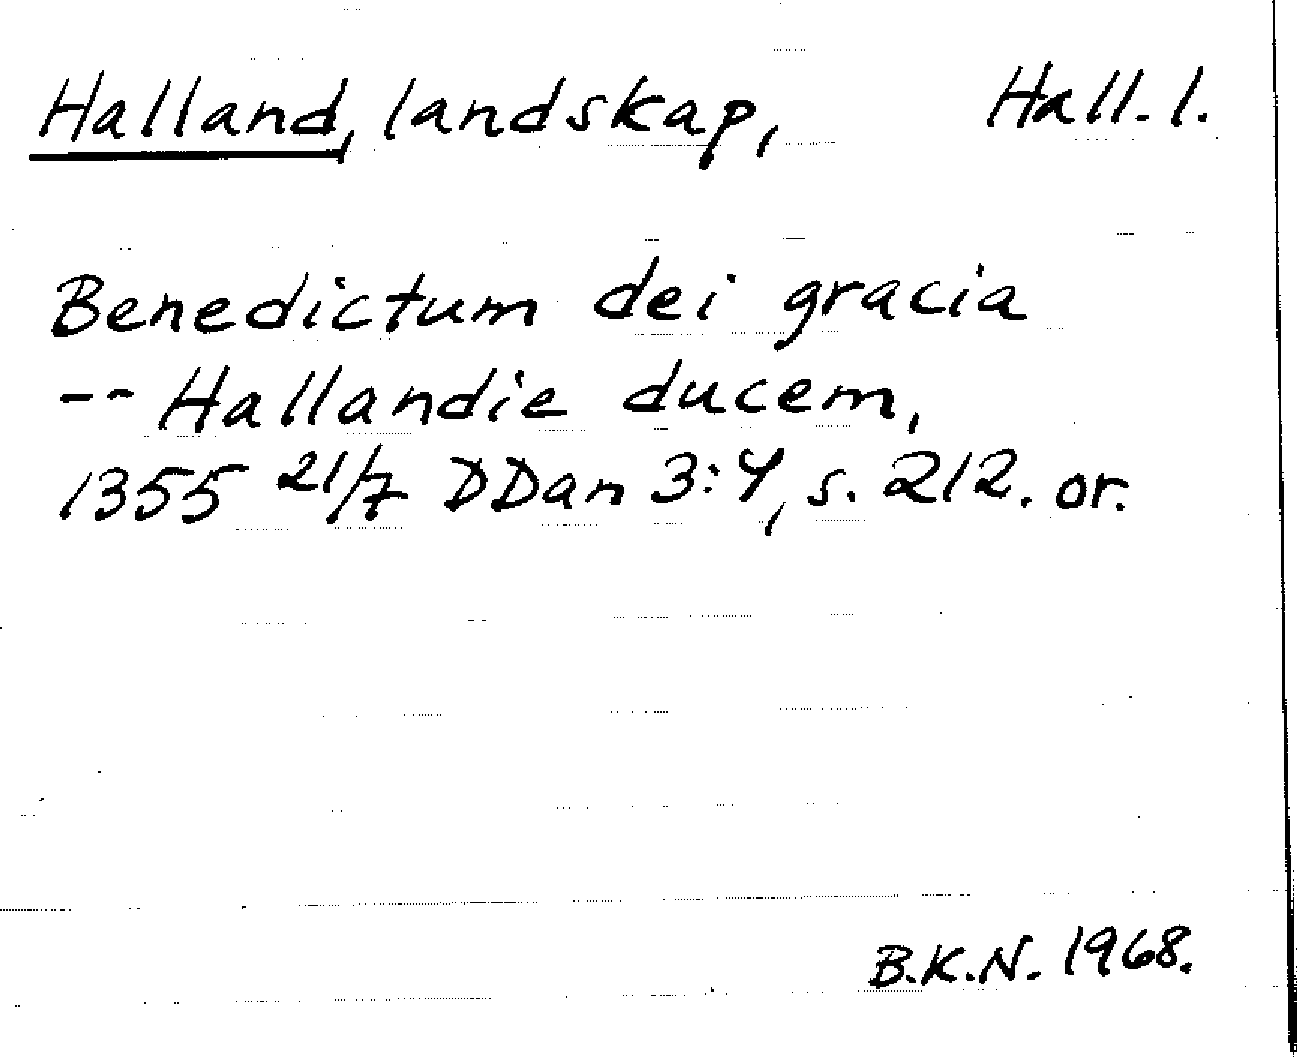 Halland, landskap, Hall. l.
Benedictum dei gracia
-- Hallandie ducem,
1355 21/7 DDan 3:4, s. 212. or.
B.K.N. 1968.